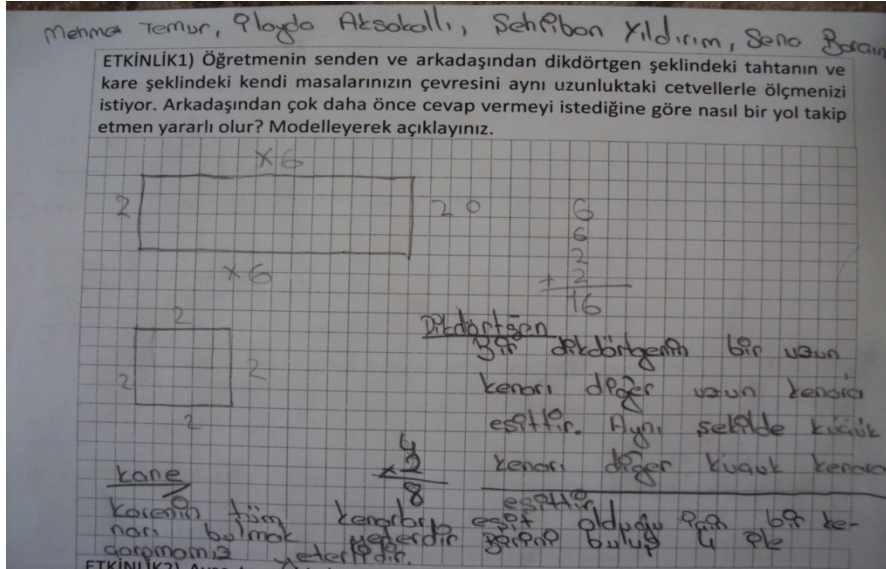 Mehmet Temur, İlayda Aksakallı, Sehriban Yıldırım, Sena
ETKİNLİK1) Öğretmenin senden ve arkadaşından dikdörtgen şeklindeki tahtanın ve
kare şeklindeki kendi masalarınızın çevresini aynı uzunluktaki cetvellerle ölçmenizi
istiyor. Arkadaşından çok daha önce cevap vermeyi istediğine göre nasıl bir yol takip
etmen yararlı olur? Modelleyerek açıklayınız.
x6
2
2
6
6
2
+ 2
16
x6
2
2
2
2
Dikdörtgen
Bir dikdörtgenin bir uzun
kenarı diğer uzun kenara
eşittir. Aynı şekilde küçük
kenarı diğer küçük kenara
eşittir.
4
x 2
8
kare
Karenin tüm kenarları eşit olduğu için bir ke-
narı bulmak yeterdir Birini bulup 4 ile
çarpmamız yeterlidir.